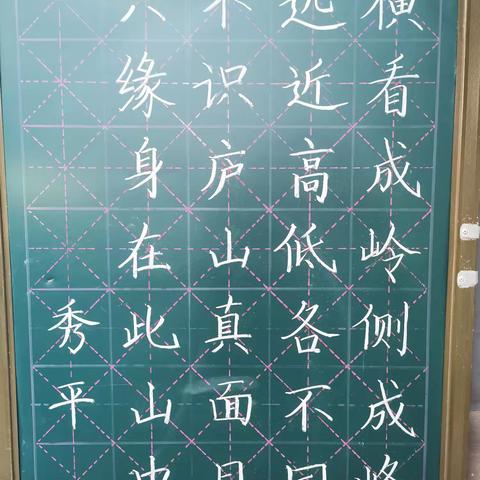 横看成岭侧成峰
远近高低各不同
不识庐山真面目
只缘身在此山中
秀平